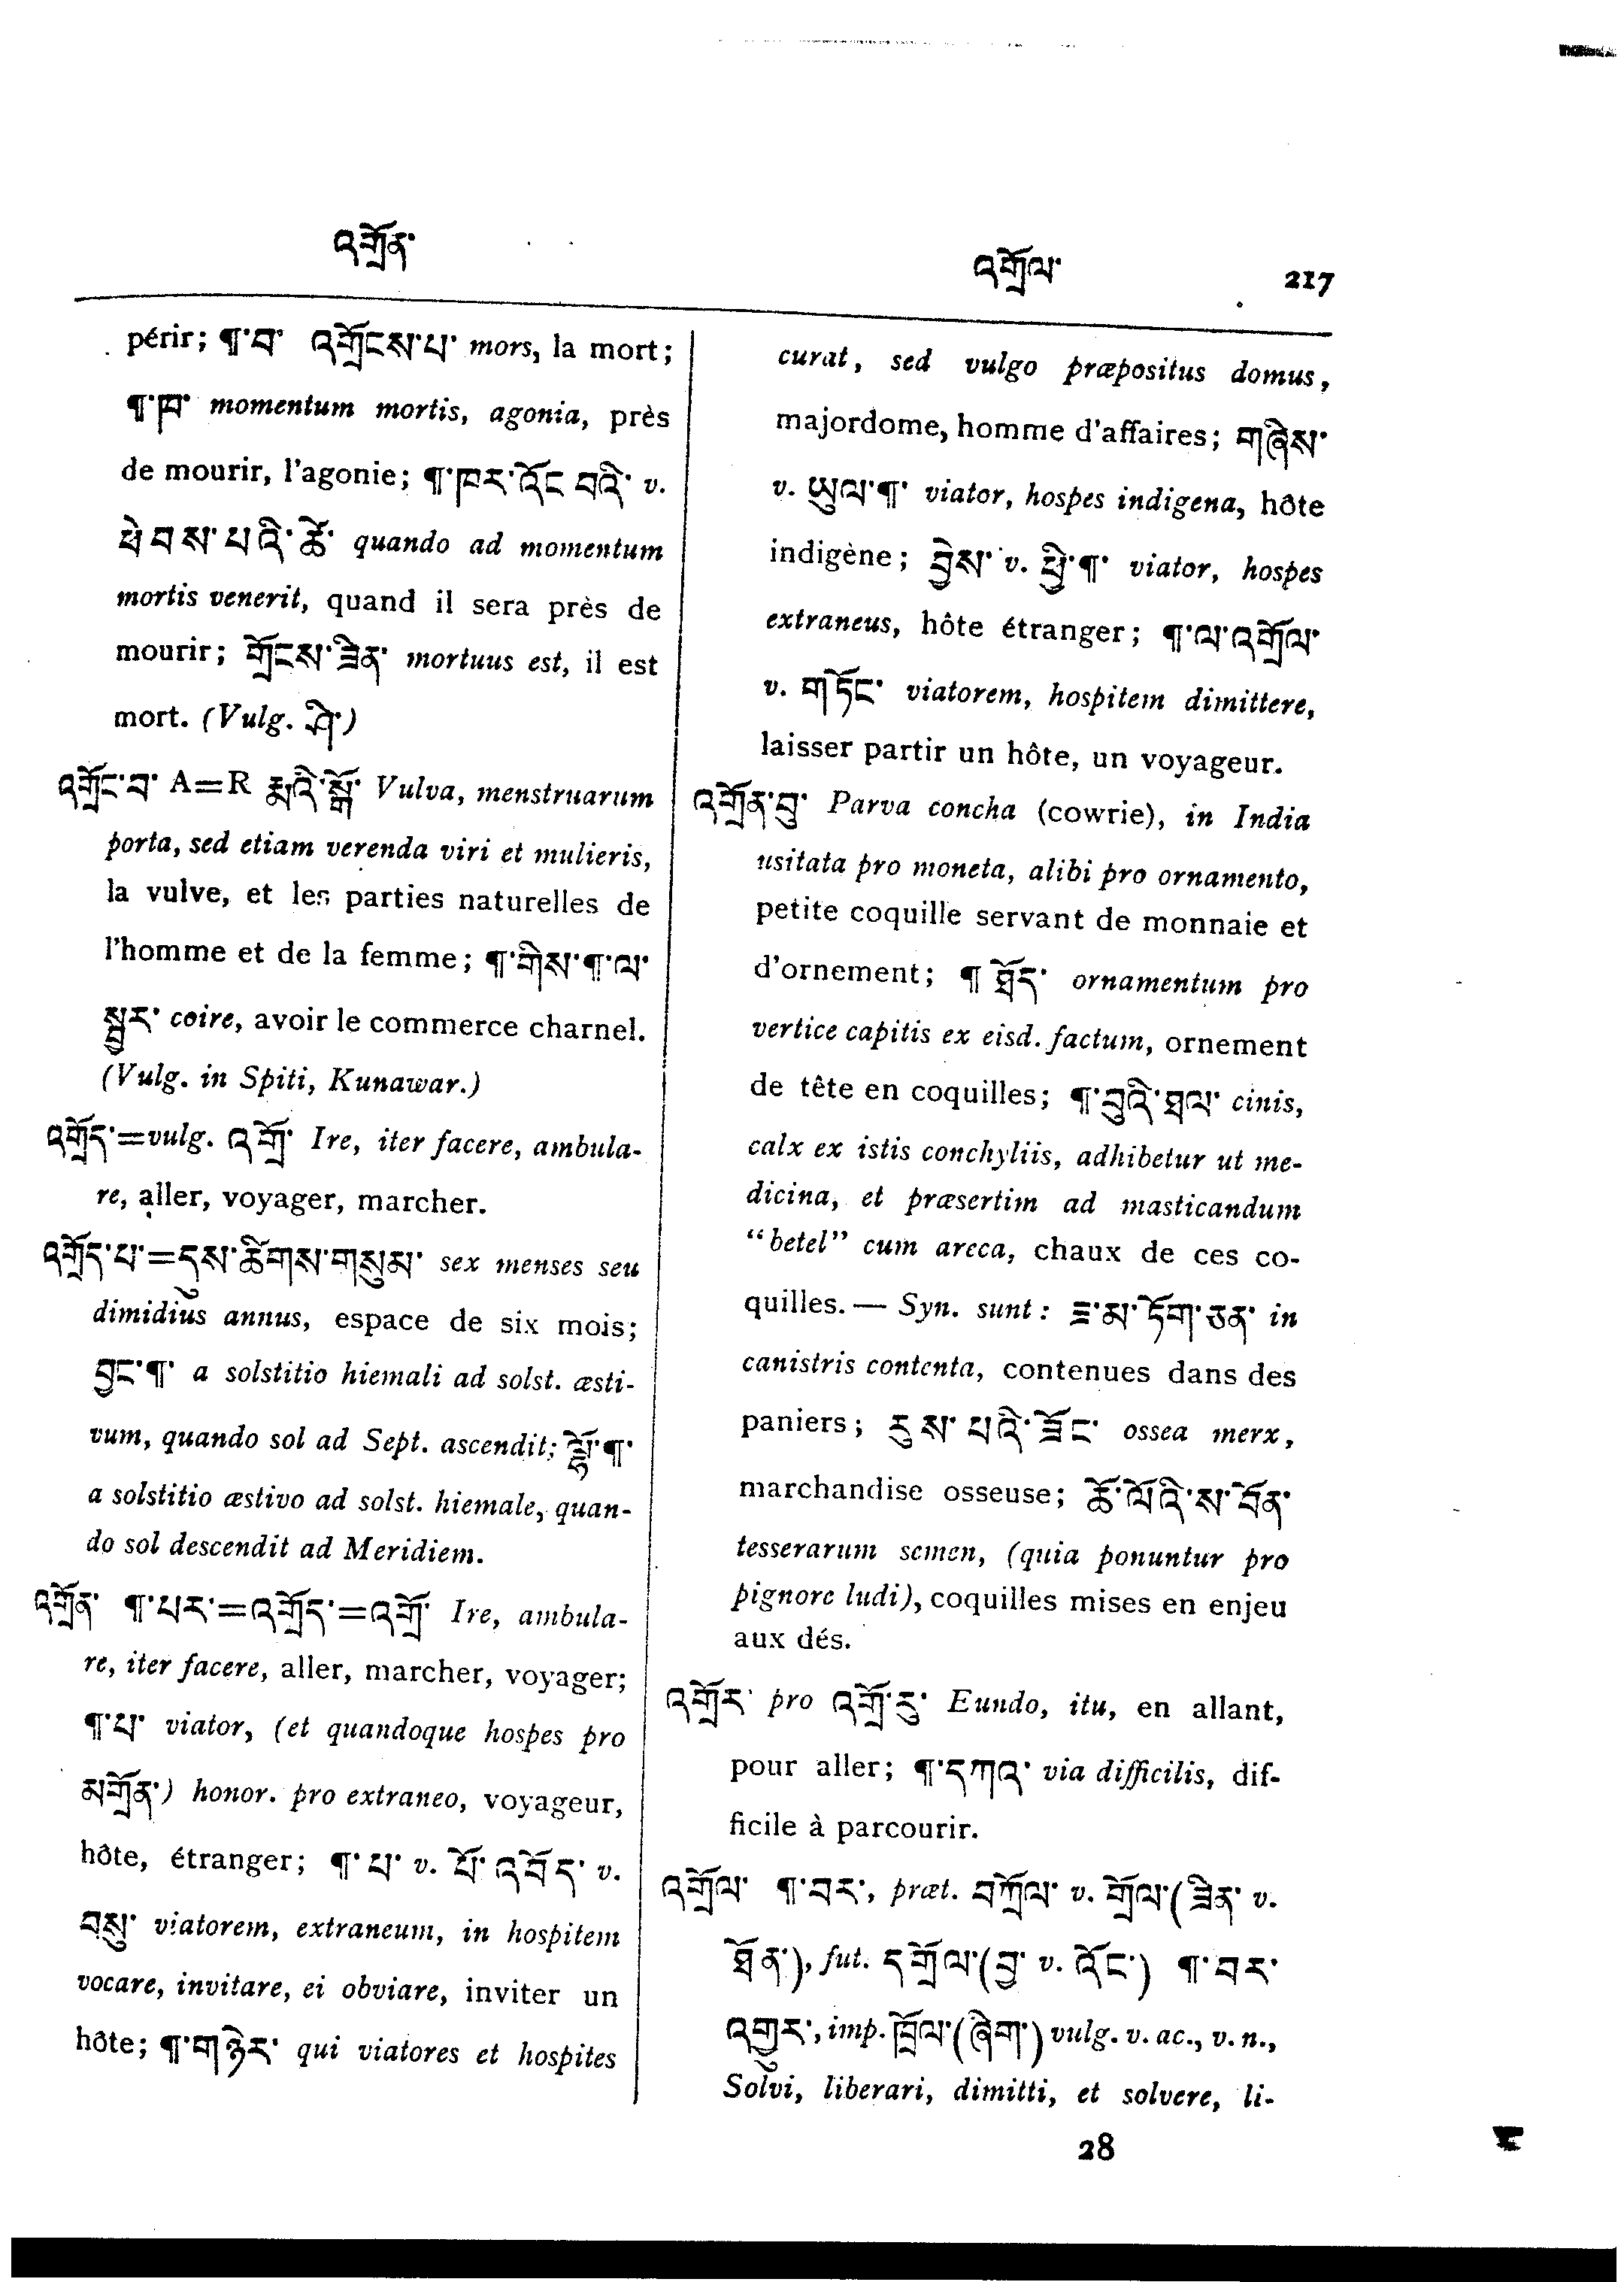 འགྲོན་
འགྲོལ་ 217
périr; ¶་བ་ འགྲོངས་པ་ mors, la mort;
¶་ཁ་ momentum mortis, agonia, près
de mourir, l'agonie; ¶་ཁར་འོང་བའི་ v.
ཕེབས་པའི་ཚེ་ quando ad momentum
mortis venerit, quand il sera près de
mourir; གྲོངས་ཟིན་ mortuus est, il est
mort. (Vulg. ཤི་)
འགྲོང་བ་ A=R རྨའི་སྒོ་ Vulva, menstruarum
porta, sed etiam verenda viri et mulieris,
la vulve, et les parties naturelles de
l'homme et de la femme; ¶་གིས་¶་ལ་
སྦྱར་ coire, avoir le commerce charnel.
(Vulg. in Spiti, Kunawar.)
འགྲོད་=vulg. འགྲོ་ Ire, iter facere, ambula-
re, aller, voyager, marcher.
འགྲོད་པ་=དུས་ཚིགས་གསུམ་ sex menses seu
dimidius annus, espace de six mois;
བྱང་¶་ a solstitio hiemali ad solst. æsti-
vum, quando sol ad Sept. ascendit; ལྷོ་¶་
a solstitio æstivo ad solst. hiemale, quan-
do sol descendit ad Meridiem.
འགྲོན་ ¶་པར་=འགྲོད་=འགྲོ་ Ire, ambula-
re, iter facere, aller, marcher, voyager;
¶་པ་ viator, (et quandoque hospes pro
མགྲོན་) honor. pro extraneo, voyageur,
hôte, étranger; ¶་པ་ v. པོ་འབོད་ v.
བསུ་ viatorem, extraneum, in hospitem
vocare, invitare, ei obviare, inviter un
hôte; ¶་གཉེར་ qui viatores et hospites
curat, sed vulgo præpositus domus,
majordome, homme d'affaires; གཞིས་
v. ཡུལ་¶་ viator, hospes indigena, hôte
indigène; བྱེས་ v. ཕྱི་¶་ viator, hospes
extraneus, hôte étranger; ¶་ལ་འགྲོལ་
v. གཏོང་ viatorem, hospitem dimittere,
laisser partir un hôte, un voyageur.
འགྲོན་བུ་ Parva concha (cowrie), in India
usitata pro moneta, alibi pro ornamento,
petite coquille servant de monnaie et
d'ornement; ¶ ཐོད་ ornamentum pro
vertice capitis ex eisd. factum, ornement
de tête en coquilles; ¶་བུའི་ཐལ་ cinis,
calx ex istis conchyliis, adhibetur ut me-
dicina, et præsertim ad masticandum
“betel” cum areca, chaux de ces co-
quilles.— Syn. sunt: ཇ་མ་ཏོག་ཅན་ in
canistris contenta, contenues dans des
paniers; རུས་པའི་ཟོང་ ossea merx,
marchandise osseuse; ཆོ་ལོའི་ས་བོན་
tesserarum semen, (quia ponuntur pro
pignore ludi), coquilles mises en enjeu
aux dés.
འགྲོར་ pro འགྲོ་རུ་ Eundo, itu, en allant,
pour aller; ¶་དཀའ་ via difficilis, dif-
ficile à parcourir.
འགྲོལ་ ¶་བར་, præt. བཀྲོལ་ v. གྲོལ་(ཟིན་ v.
ཐོན་), fut. དགྲོལ་(བྱ་ v. འོང་) ¶་བར་
འགྱུར་, imp. ཁྲོལ་(ཞིག་) vulg. v. ac., v. n.,
Solvi, liberari, dimitti, et solvere, li-
28